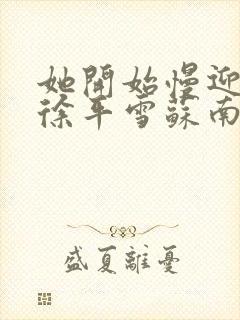 她開始慢迎
徐平雪蘇南
盛夏離憂